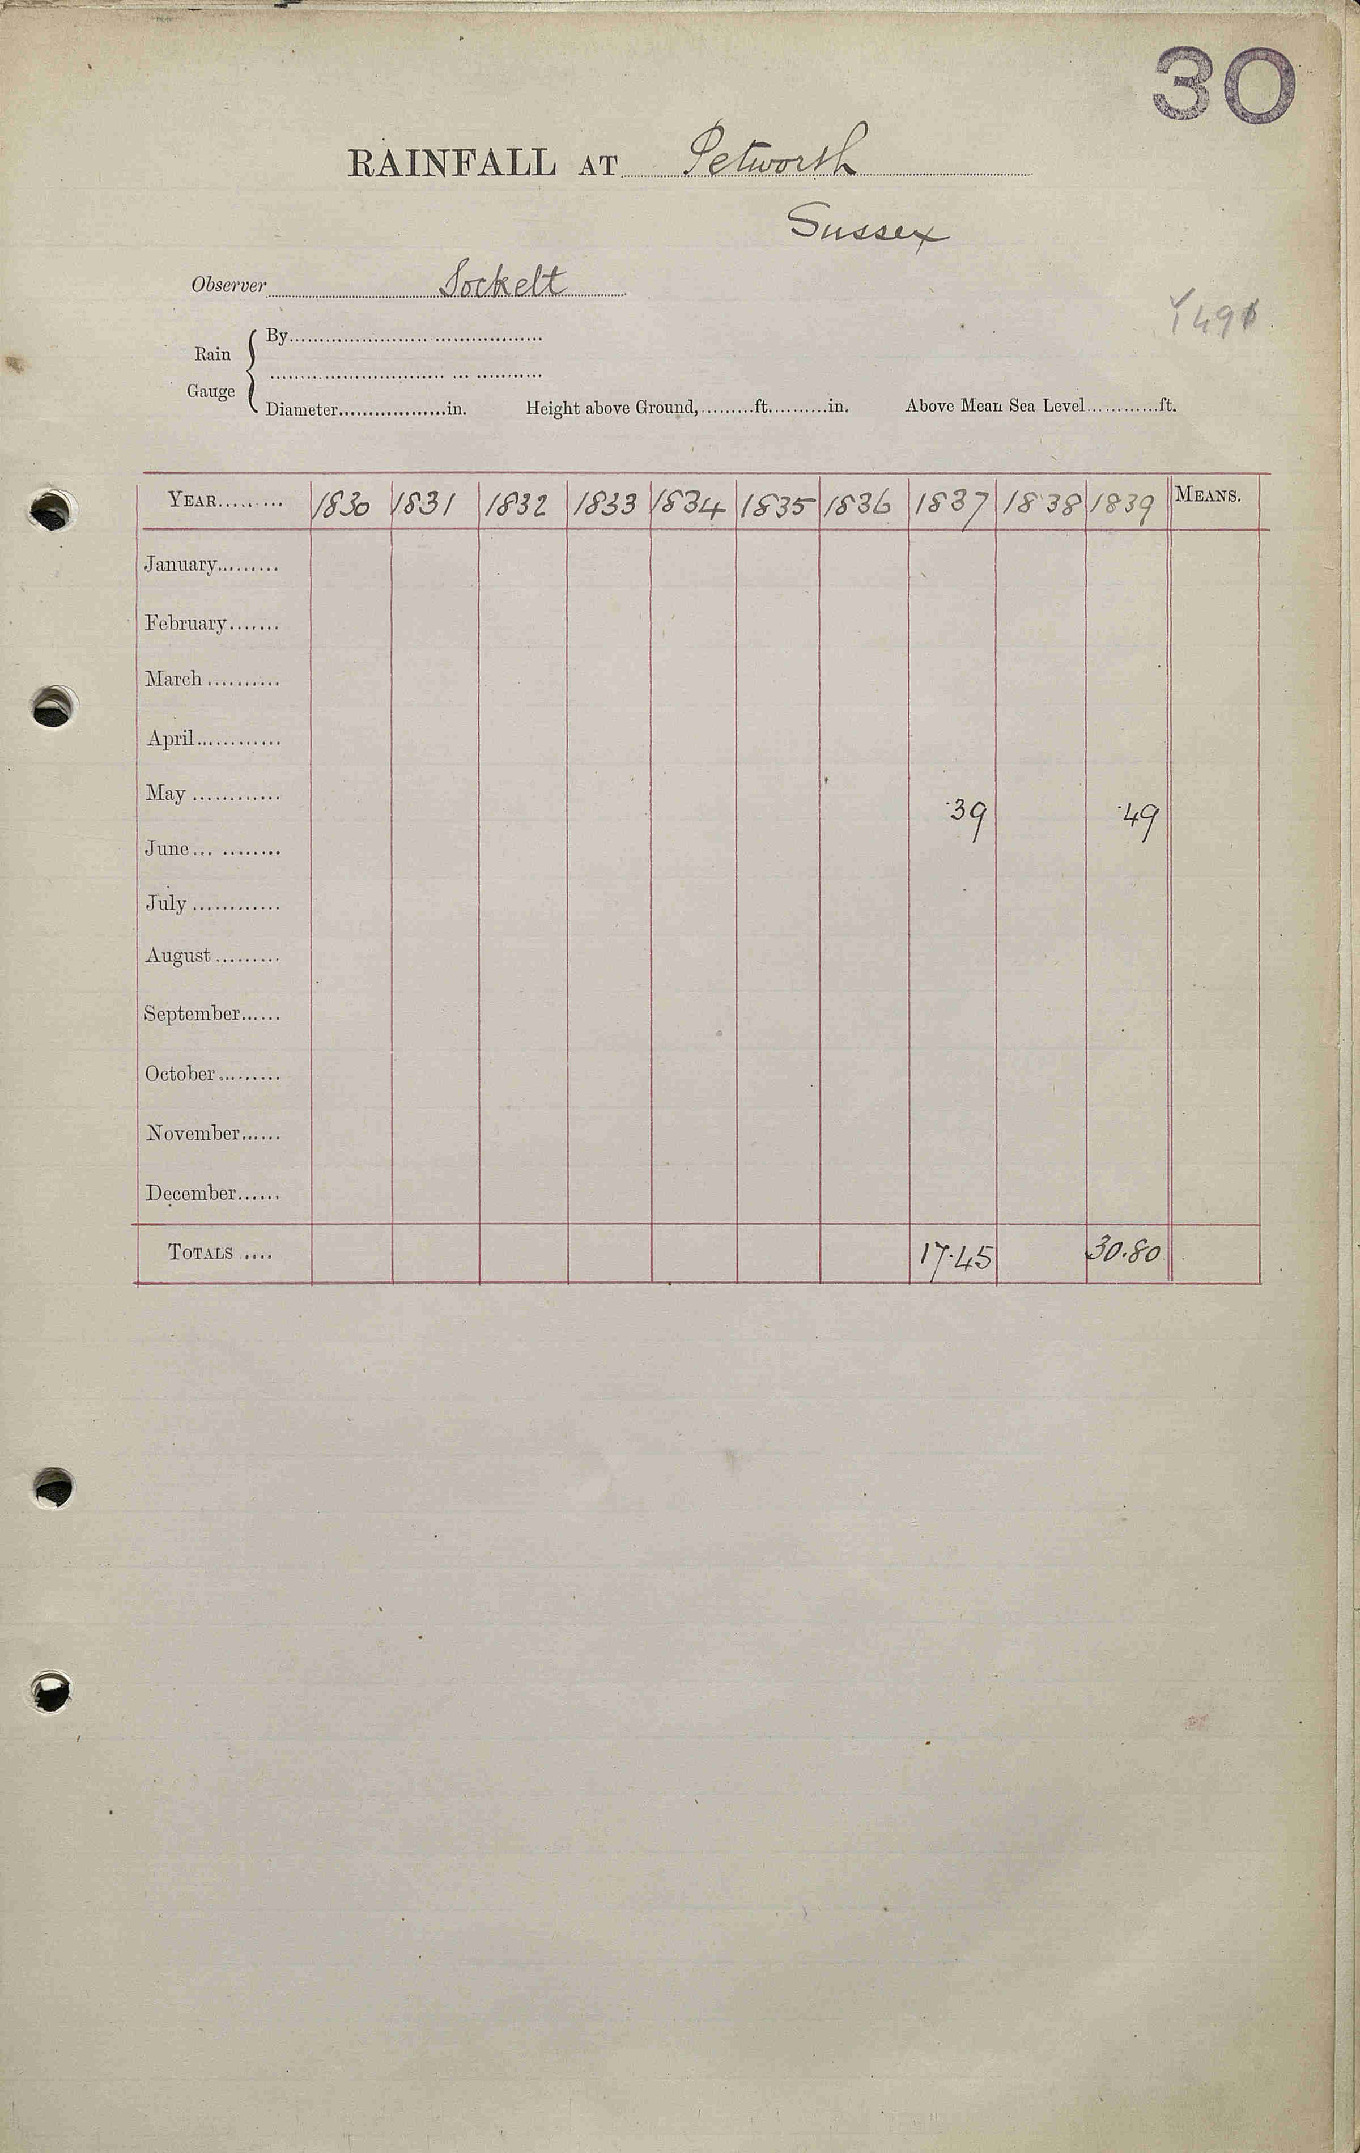 30
RAINFALL AT Petworth
Sussex
Observer Sockett
Y49
Rain Gauge
By
Diameter in. Height above Ground, ft. in. Above Mean Sea Level ft.
YEAR 1830 1831 1832 1833 1834 1835 1836 1837 1838 1839 MEANS.
January
February
March
April
May ·39 ·49
June
July
August
September
October
November
December
TOTALS 17.45 30.80